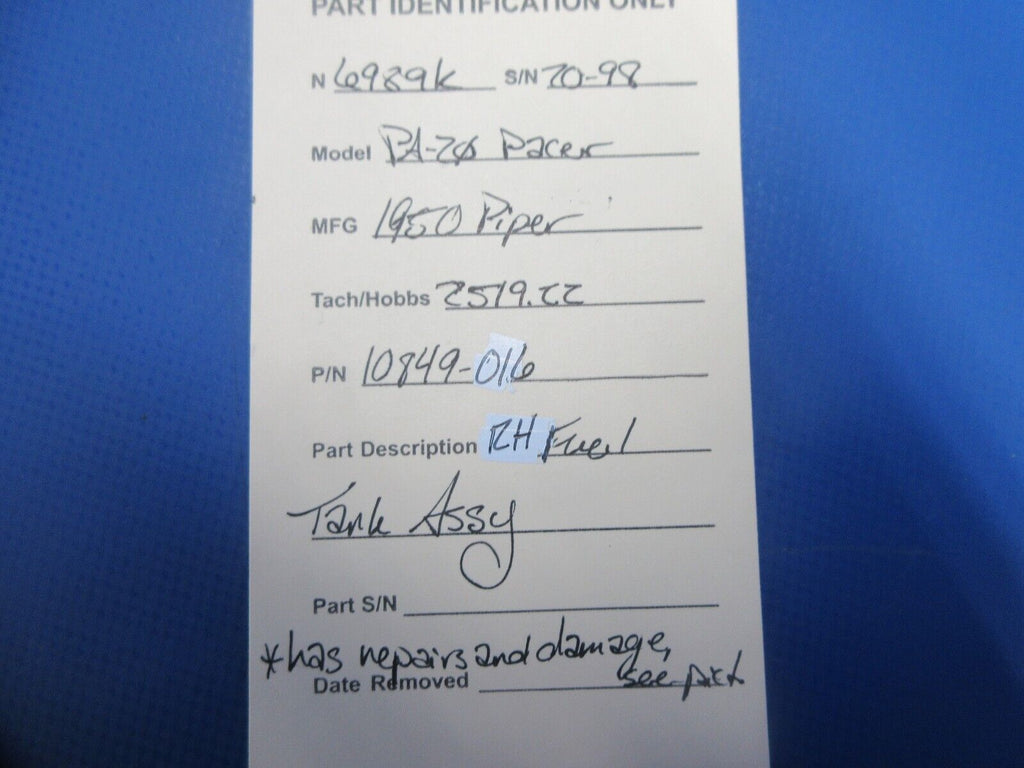 PART IDENTIFICATION ONLY
N 6989K S/N 20-98
Model PA-20 Pacer
MFG 1950 Piper
Tach/Hobbs 2519.22
P/N 10849-016
Part Description RH Fuel
Tank Assy
Part S/N
*has repairs and damage,
see
Date Removed